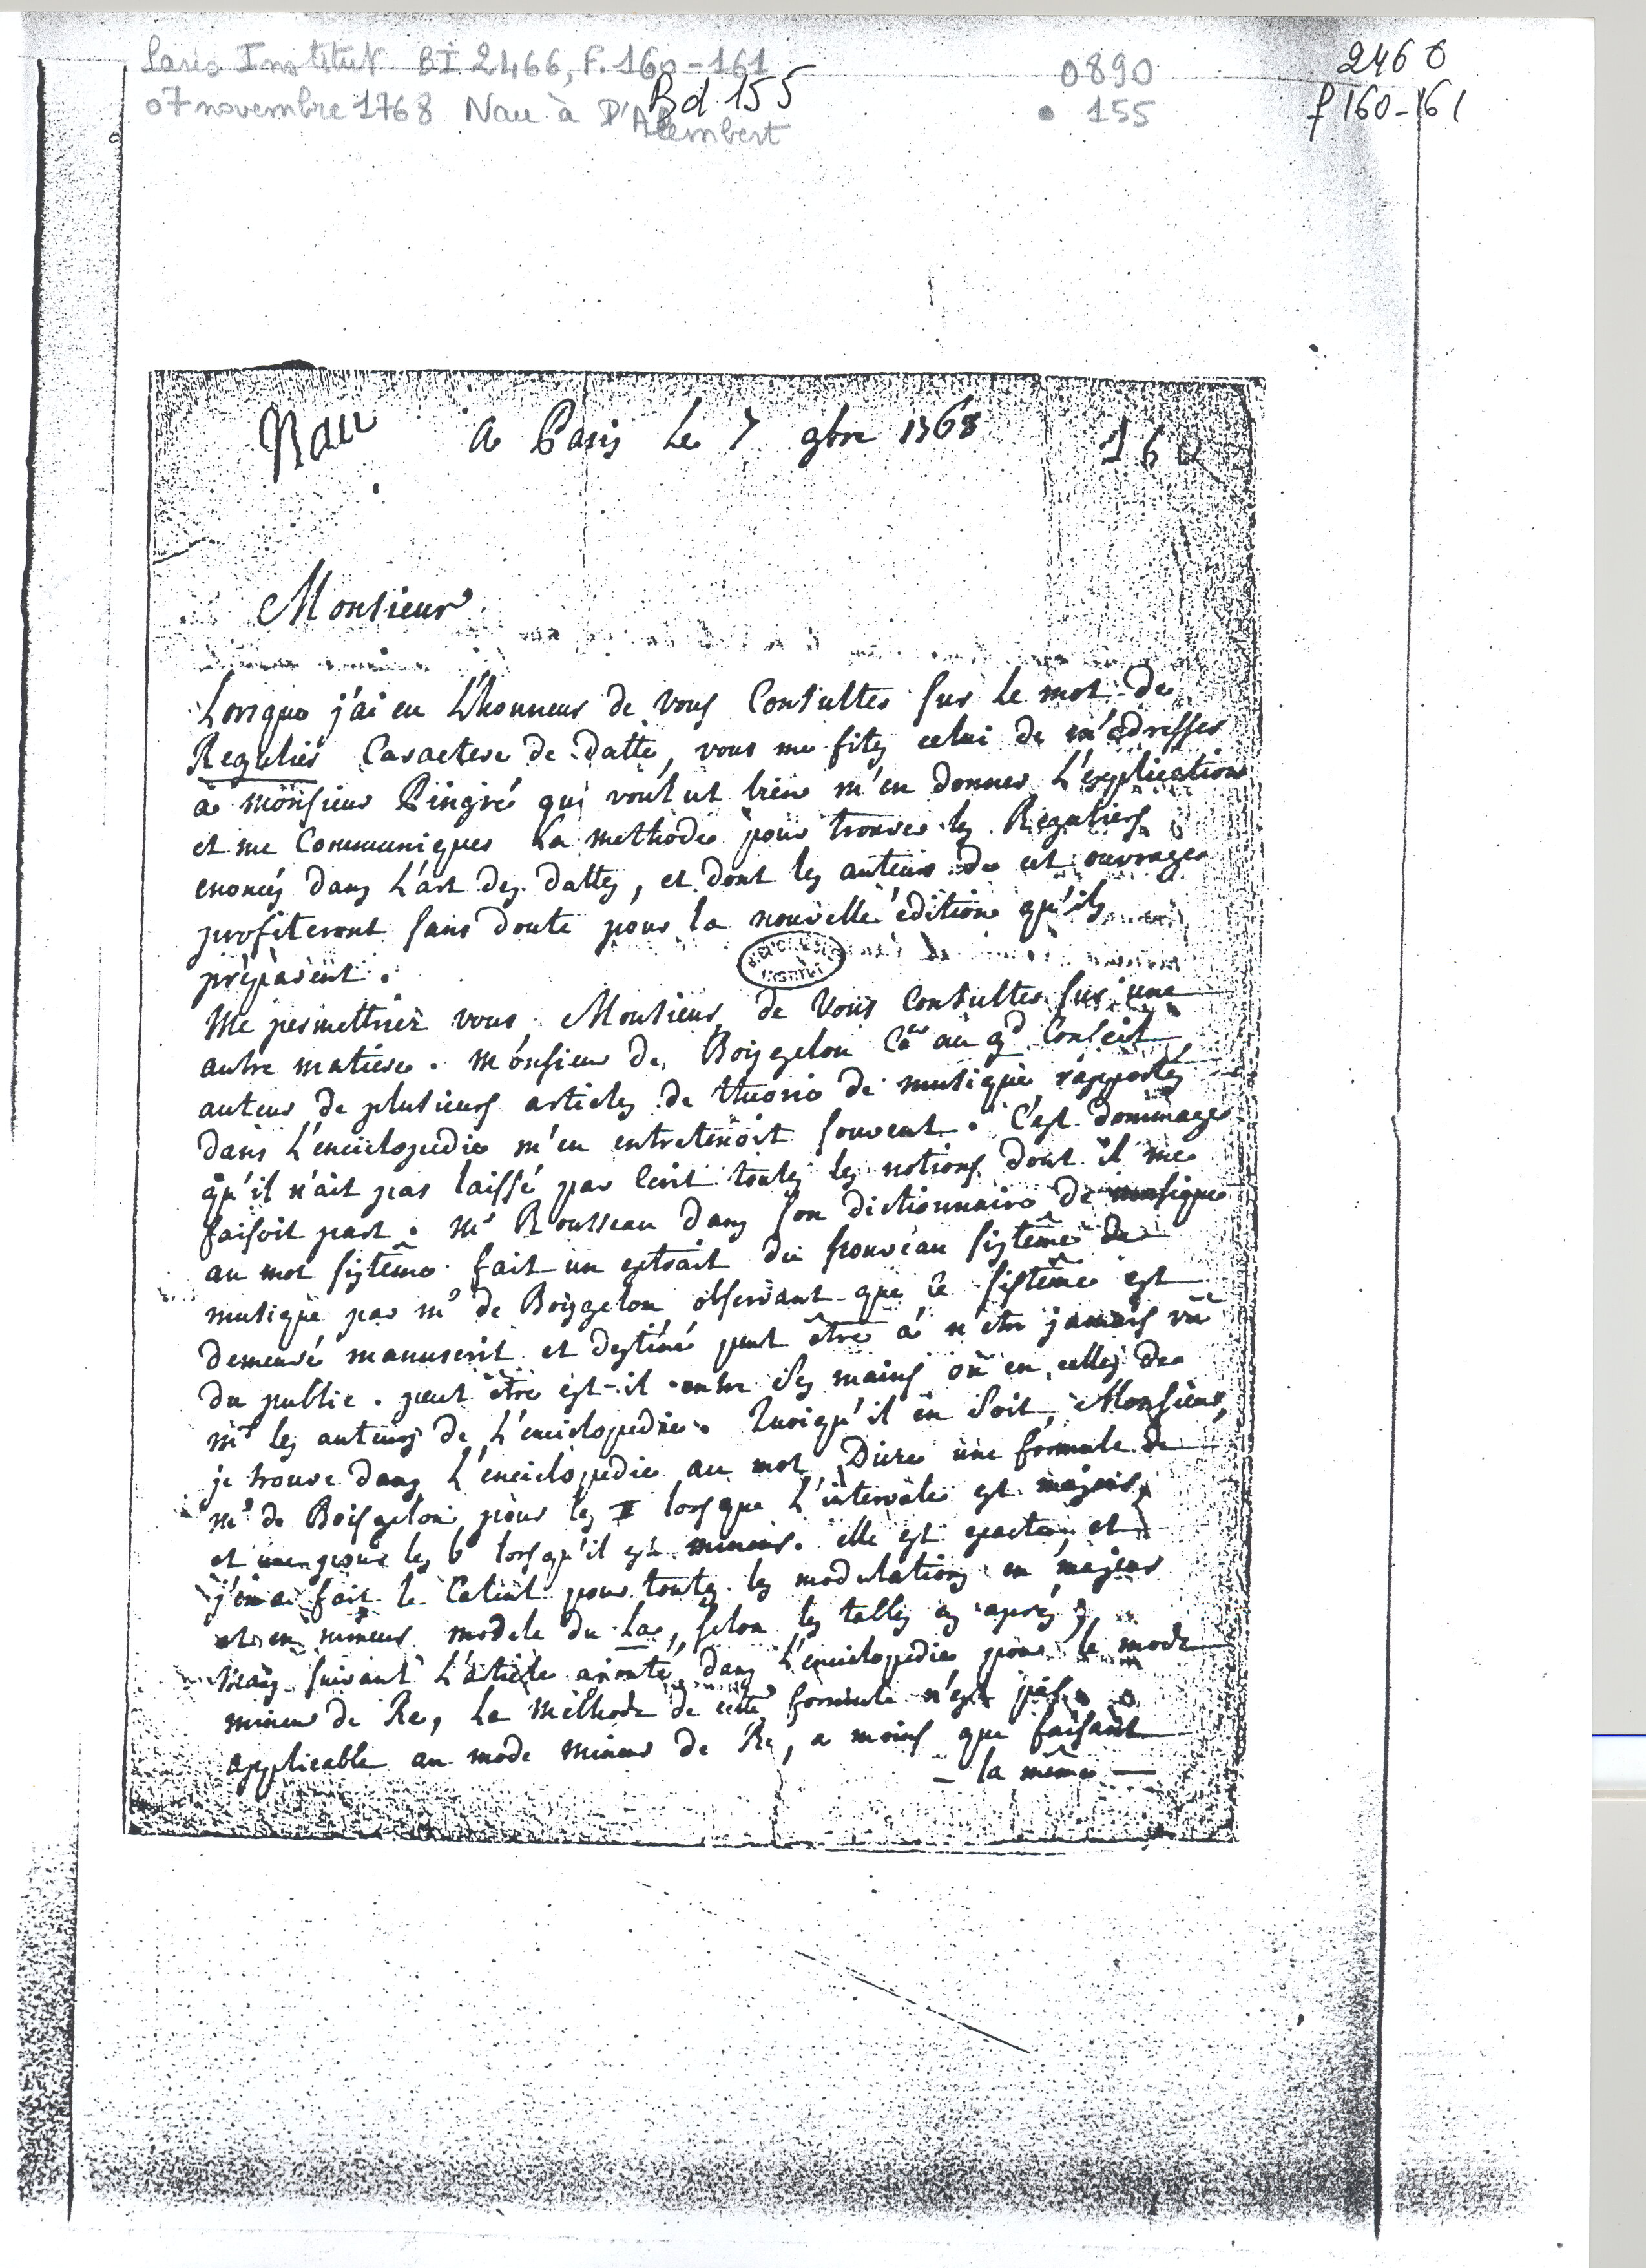 Paris Institut BI 2466, F. 160-161
07 novembre 1768 Nau à D'Alembert
Bd 155
0890
155
2466
f 160-161
Nau a Paris le 7 9bre 1768 160
Monsieur
Lorsque j'ai eu L'honneur de vous Consulter sur le mot de
Regulier Caractere de datte, vous me fites celui de m'adresser
a monsieur Pingré qui voulut bien m'en donner L'explication
et me Communiquer La methode pour trouver les Reguliers
enoncés dans L'art des dattes, et dont les auteurs de cet ouvrage
profiteront sans doute pour la nouvelle édition qu'ils
préparent.
BIBLIOTHEQUE INSTITUT
Me permettriez vous Monsieur de Vous Consulter sur une
autre matiere. monsieur de Boisgelou Cer au gd Conseil
auteur de plusieurs articles de theorie de musique rapportés
dans L'enciclopedie m'en entretenoit souvent. C'est dommage
qu'il n'ait pas laissé par Ecrit toutes les notions dont il me
faisoit part. mr Rousseau dans son dictionnaire de musique
au mot sistême fait un extrait du nouveau sistême de
musique par mr de Boisgelou observant que ce sistême est
demeuré manuscrit et destiné peut être a n'etre jamais vû
du public. peut être est-il entre ses mains ou en celles de
mrs les auteurs de L'enciclopedie. Quoiqu'il en soit, Monsieur,
je trouve dans L'enciclopedie au mot Dieze une formule de
mr de Boisgelou pour les # lorsque L'intervale est majeur,
et une pour les b lorsqu'il est mineur. elle est exacte, et
j'en ai fait le Calcul pour toutes les modulations en majeur
et en mineur modele du La, selon les tables cy aprés,
mais suivant L'article ajouté dans L'enciclopedie pour le mode
mineur de Re, La Methode de cette formule n'est pas
applicable au mode mineur de Re, a moins que faisant
— la même —